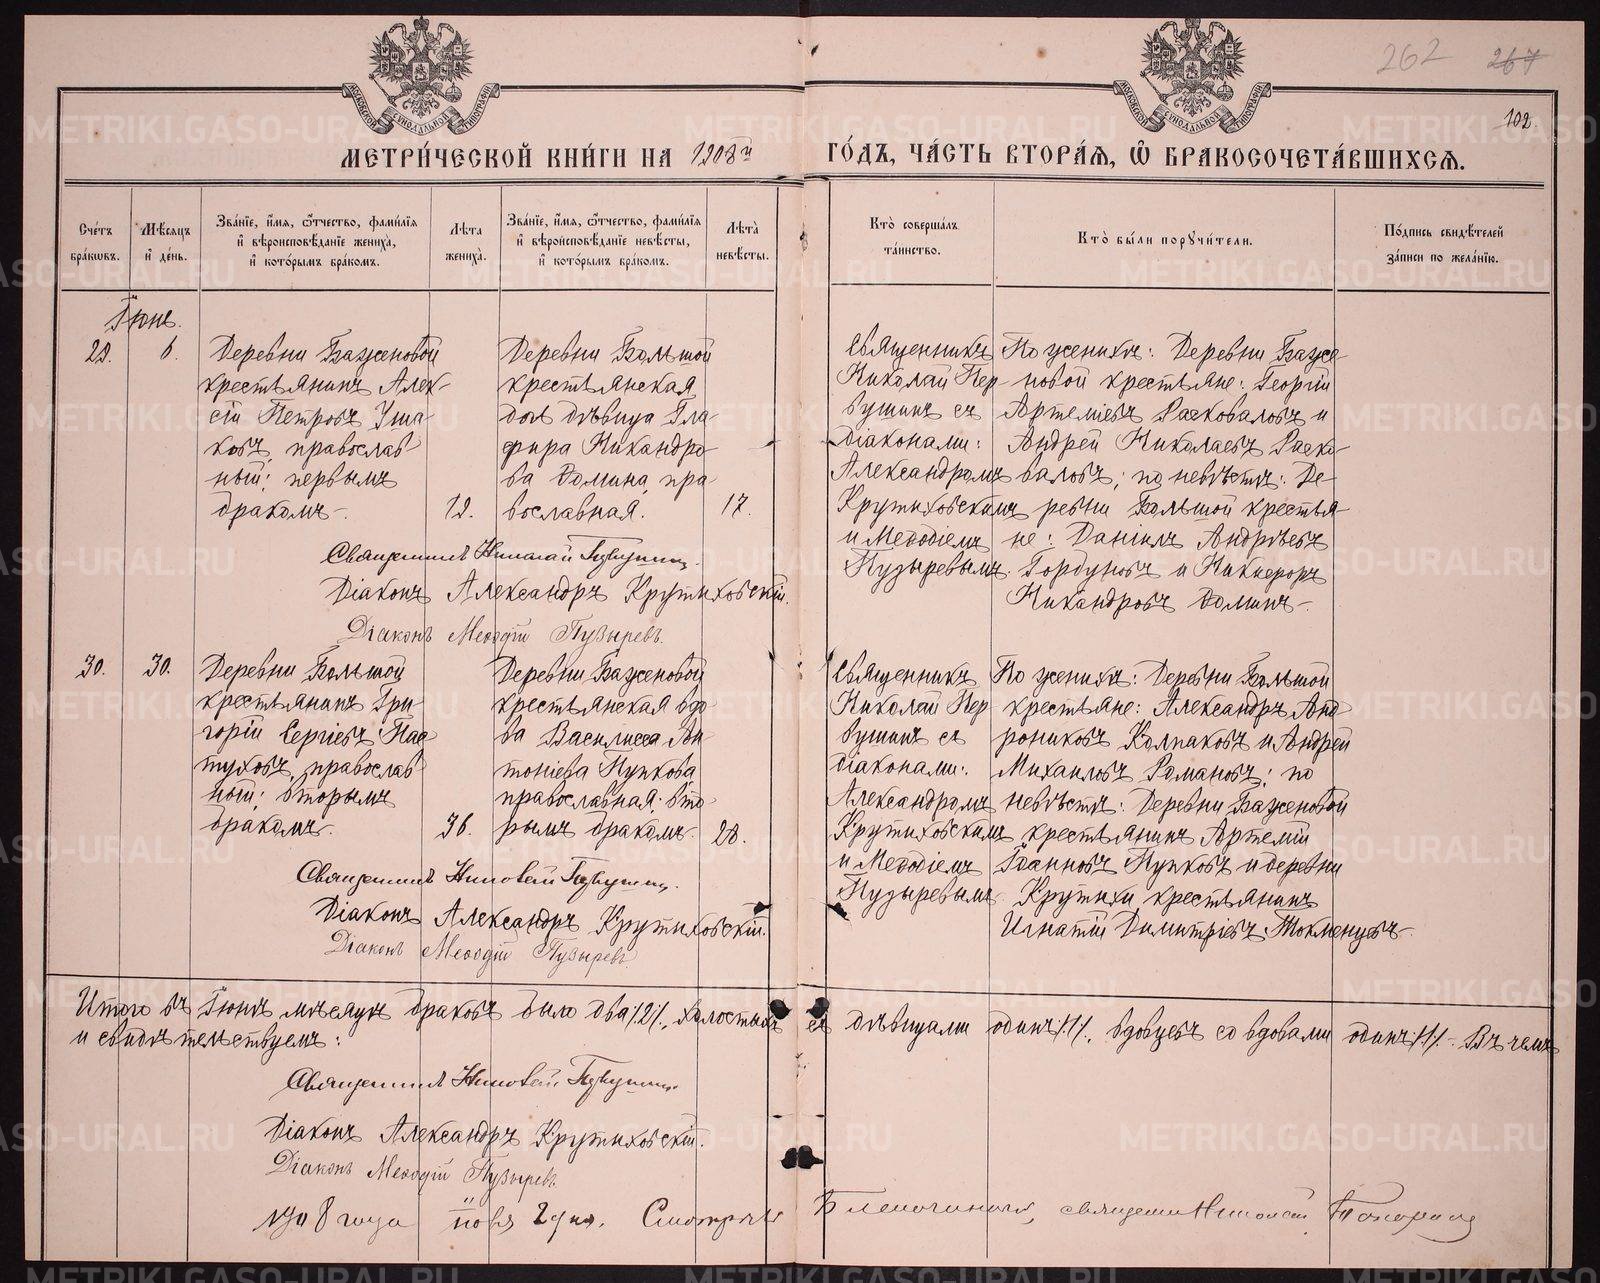 262 267
102
МОСКОВСКОЙ СѴНОДАЛЬНОЙ ТИПОГРАФІИ
МОСКОВСКОЙ СѴНОДАЛЬНОЙ ТИПОГРАФІИ
МЕТРИ́ЧЕСКОЙ КНИ́ГИ НА 1908й ГО́ДЪ, ЧА́СТЬ ВТОРА́Я, Ѡ БРАКОСОЧЕТА́ВШИХСЯ.
Сче́тъ бра́кѡвъ.
Мѣ́сяцъ и҆ де́нь.
Зва́нїе, и҆́мя, ѻ҆́тчество, фами́лїя и҆ вѣроисповѣ́данїе жениха̀, и҆ кото́рымъ бра́комъ.
Лѣ́та жениха̀.
Зва́нїе, и҆́мя, ѻ҆́тчество, фами́лїя и҆ вѣроисповѣ́данїе невѣ́сты, и҆ кото́рымъ бра́комъ.
Лѣ́та невѣ́сты.
Кто̀ соверша́лъ та́инство.
Кто̀ бы́ли поручи́тели.
По́дпись свидѣ́телей за́писи по жела́нїю.
Іюнь.
29.
6.
Деревни Баженовой
крестьянинъ Алек-
сій Петровъ Уша-
ковъ, православ
ный; первымъ
бракомъ.
19.
Деревни Большой
крестьянская
дочь дѣвица Гла-
фира Никандро-
ва Домина, пра
вославная.
17.
Священникъ
Николай Пер
вушинъ съ
діаконами:
Александромъ
Крутиховскимъ
и Меѳодіемъ
Пузыревымъ
По женихѣ: Деревни Баже-
новой крестьяне: Георгій
Артеміевъ Расковаловъ и
Андрей Николаевъ Раско-
валовъ; по невѣстѣ: Де-
ревни Большой крестья-
не: Даніилъ Андреевъ
Горбуновъ и Никифоръ
Никандровъ Доминъ.
Священникъ Николай Первушинъ.
Діаконъ Александръ Крутиховскій.
Діаконъ Меѳодій Пузыревъ.
30.
30.
Деревни Большой
крестьянинъ Гри-
горій Сергіевъ Пас
туховъ, православ
ный; вторымъ
бракомъ.
36.
Деревни Баженовой
крестьянская вдо
ва Василисса Ан
тоніева Пупкова
православная; вто
рымъ бракомъ.
28.
Священникъ
Николай Пер
вушинъ съ
діаконами:
Александромъ
Крутиховскимъ
и Меѳодіемъ
Пузыревымъ
По женихѣ: Деревни Большой
крестьяне: Александръ Анд
рониковъ Колпаковъ и Андрей
Михаиловъ Романовъ; по
невѣстѣ: Деревни Баженовой
крестьянинъ Артемій
Іоанновъ Пупковъ и деревни
Крутихи крестьянинъ
Игнатій Димитріевъ Токменцевъ.
Священникъ Николай Первушинъ.
Діаконъ Александръ Крутиховскій.
Діаконъ Меѳодій Пузыревъ.
Итого въ Іюнѣ мѣсяцѣ браковъ было два /2/, холостыхъ съ дѣвицами одинъ /1/, вдовцевъ со вдовами одинъ /1/. Въ чемъ
и свидѣтельствуемъ:
Священникъ Николай Первушинъ.
Діаконъ Александръ Крутиховскій.
Діаконъ Меѳодій Пузыревъ.
1908 года 2 дня. Смотрѣлъ Благочинный, священникъ Николай
METRIKI.GASO-URAL.RU